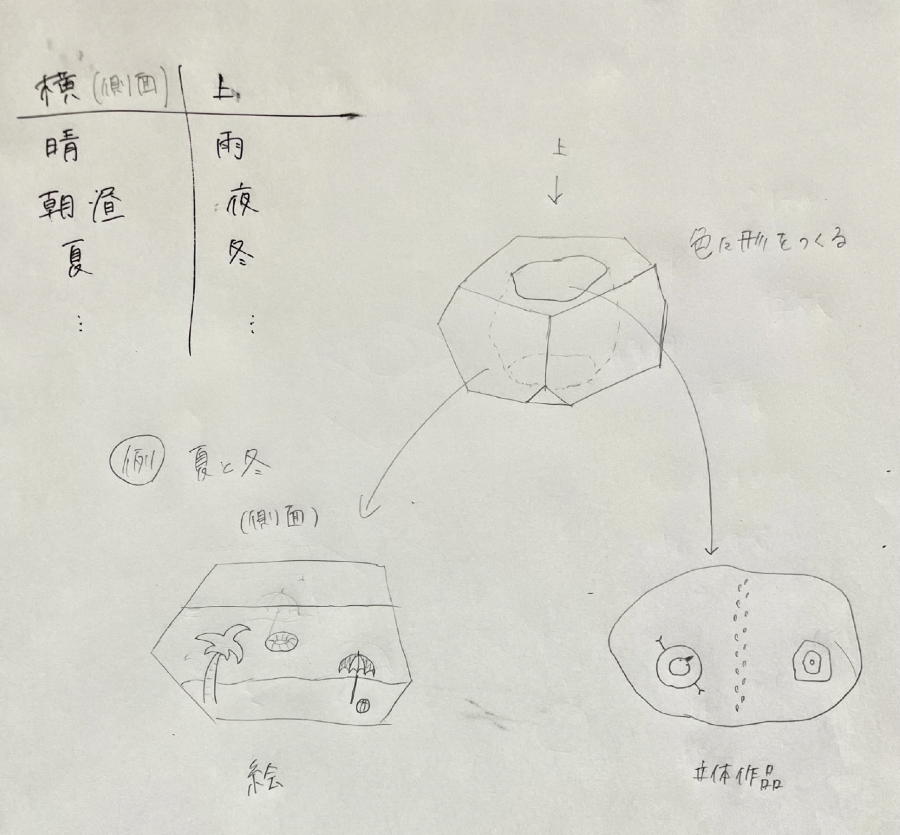 横(側面) 上
晴 雨
朝 昼 夜
夏 冬
⋮ ⋮
上
色に形をつくる
例 夏と冬
(側面)
絵
立体作品